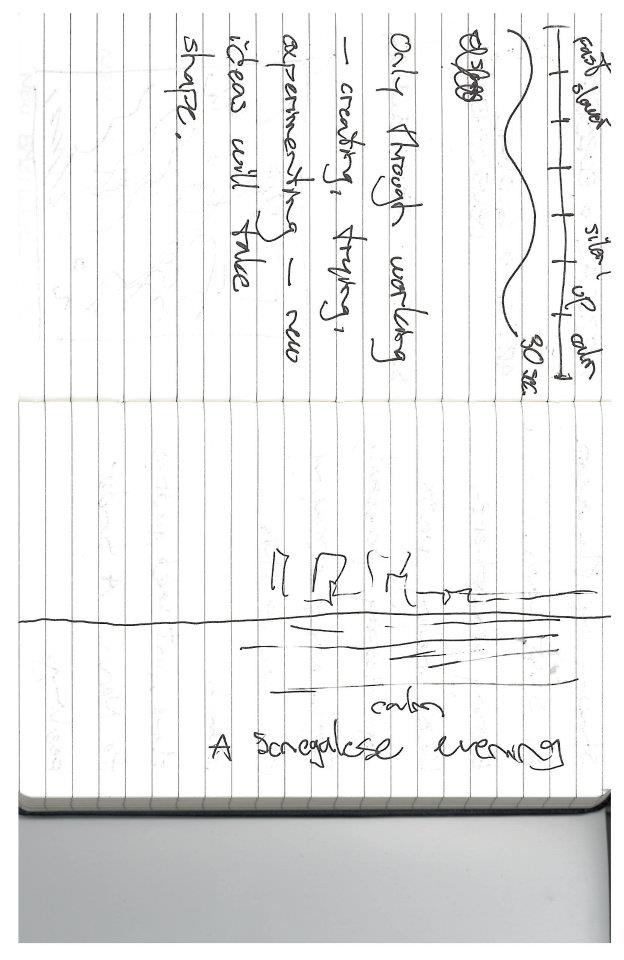 fast slower silent up calm
30 sec.
Only through working
– creating, trying,
experimenting – new
ideas will take
shape.
calm
A Senegalese evening